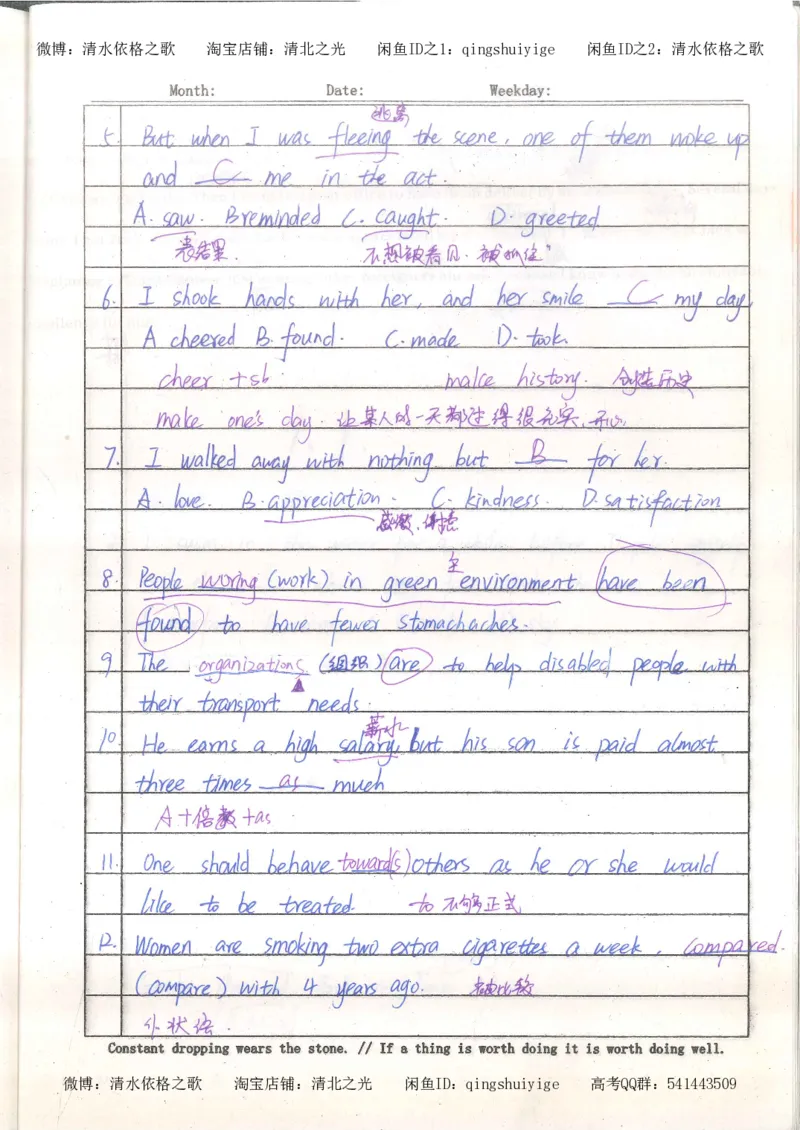 微博：清水依格之歌 淘宝店铺：清北之光 闲鱼ID之1：qingshuiyige 闲鱼ID之2：清水依格之歌
Month: Date: Weekday:
逃离
5. But when I was fleeing the scene, one of them woke up
and C me in the act.
A. saw. B reminded C. caught. D. greeted
表结果. 不想被看见.被"抓住"
6. I shook hands with her, and her smile C my day.
A cheered B. found. C. made D. took.
cheer + sb. make history. 创造历史
make one's day. 让某人的一天都过得很充实、开心
7. I walked away with nothing but B for her.
A. love. B. appreciation. C. kindness. D. satisfaction
感激、
主
8. People woring (work) in green environment have been
found to have fewer stomachaches.
9 The organizations (组织) are to help disabled people with
their transport needs.
薪水
10. He earns a high salary, but his son is paid almost
three times as much
A+倍数+as
11. One should behave toward(s) others as he or she would
like to be treated. to 不够正式
12. Women are smoking two extra cigarettes a week, compared.
(compare) with 4 years ago. 被比较
作状语.
Constant dropping wears the stone. // If a thing is worth doing it is worth doing well.
微博：清水依格之歌 淘宝店铺：清北之光 闲鱼ID：qingshuiyige 高考QQ群：541443509